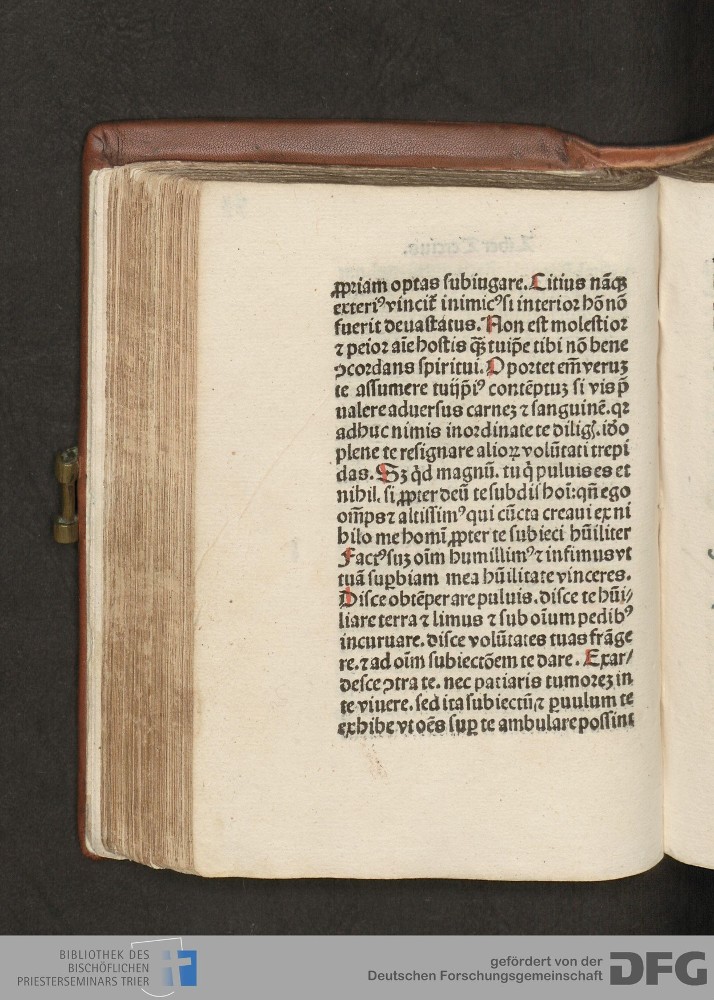 ꝓpriam optas subiugare. Citius nãqꝫ
exteriꝰ vincit̃ inimicꝰ si interior hõ nõ
fuerit deuastatus. Non est molestior
⁊ peior aĩe hostis q̃ꝫ tuip̃e tibi nõ bene
ꝯcordans spiritui. Oportet em̃ veruꝫ
te assumere tuijp̃iꝰ contẽptuꝫ si vis p̃
ualere aduersus carneꝫ ⁊ sanguinẽ. qꝛ
adhuc nimis inordinate te diligꝭ. iõo
plene te resignare alioꝝ volũtati trepi
das. Sꝫ qͥd magnũ. tu qͥ puluis es et
nihil. si ꝓpter deũ te subdis hoĩ: qñ ego
om̃ps ⁊ altissimꝰ qui cũcta creaui ex ni
hilo me homĩ ꝓpter te subieci hũiliter
Factꝰ suꝫ oĩm humillimꝰ ⁊ infimus vt
tuã suꝑbiam mea hũilitate vinceres.
Disce obtẽperare puluis. disce te hũi/
liare terra ⁊ limus ⁊ sub oĩum pedibꝰ
incuruare. disce volũtates tuas frãge
re. ⁊ ad oĩm subiectõem te dare. Exar/
desce ꝯtra te. nec patiaris tumoreꝫ in
te viuere. sed ita subiectũ ⁊ ꝑuulum te
exhibe vt oẽs suꝑ te ambulare possint
BIBLIOTHEK DES
BISCHÖFLICHEN
PRIESTERSEMINARS TRIER
gefördert von der
Deutschen Forschungsgemeinschaft
DFG